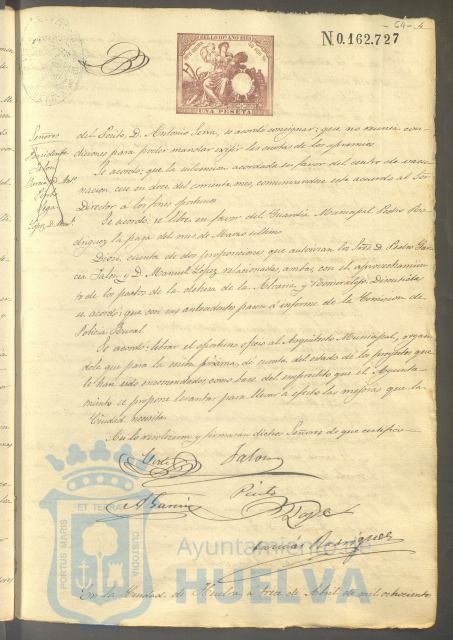 64 - 4
SELLO DE AÑO
N.0.162.727
UNA PESETA
Señores
Presidente
Jalon
Garcia D. Ant.
Pinto
Vega
Lopez D. Man.
del Perito, D. Antonio se acordó consignar: que no reunia con-
diciones para poder mandar exijir las cuotas de los
Se acordó: que la subvencion acordada en favor del centro de vacu-
nacion cese en doce del corriente mes, comunicandose este acuerdo al Sor
Director á los fines oportunos
Se acordó: se libre en favor del Guardia Municipal Pedro Ro-
driguez la paga del mes de Marzo último
Dióse cuenta de dos proposiciones que autorizan los Sres D. Pedro Gar-
cia Jalon, y D. Manuel Lopez relacionadas ambas con el aprovechamien-
to de los pastos de la dehesa de la Alcaria, y
se acordó: que con sus antecedentes pasen á informe de la Comision de
Policia Rural
Se acordó: librar el oportuno oficio al Arquitecto Municipal, rogan-
dole que para la sesion próxima, dé cuenta del estado de los proyectos que
le han sido recomendados, como base del empréstito que el Ayunta-
miento se propone levantar para llevar á efecto las mejoras que la
Ciudad necesita.
Asi lo resolvieron y firmaran dichos Señores de que certifico
Jalon
A Garcia
Pinto
Rodriguez
PORTUS MARIS
ET TERRAE
CUSTODIA
Ayuntamiento de
HUELVA
En la Ciudad de Huelva á trece de Abril de mil ochocientos